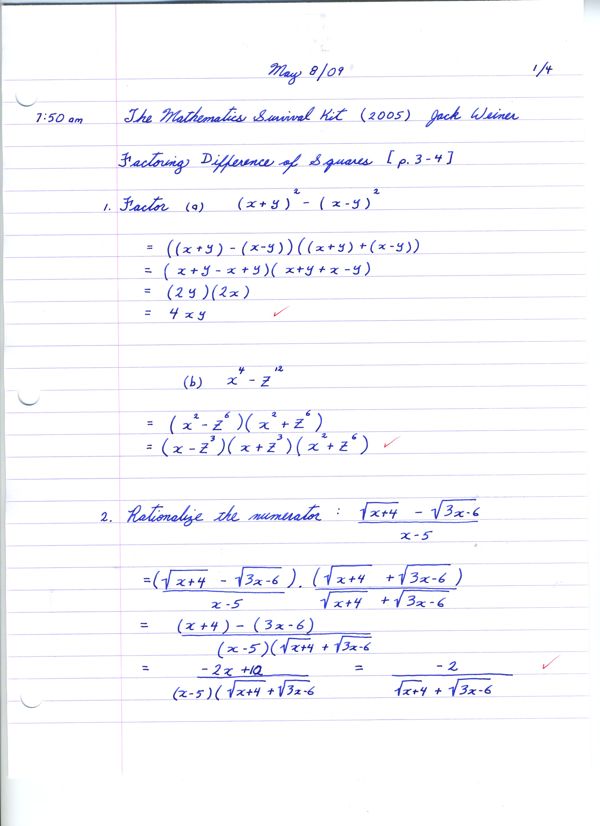 May 8/09 1/4
7:50 am The Mathematics Survival Kit (2005) Jack Weiner
Factoring Difference of Squares [p. 3-4]
1. Factor (a) (x+y)² - (x-y)²
= ((x+y) - (x-y))((x+y)+(x-y))
= (x+y-x+y)(x+y+x-y)
= (2y)(2x)
= 4xy ✓
(b) x⁴ - z¹²
= (x² - z⁶)(x² + z⁶)
= (x - z³)(x + z³)(x² + z⁶) ✓
2. Rationalize the numerator : √x+4 - √3x-6
x-5
= (√x+4 - √3x-6) . (√x+4 + √3x-6)
x-5 √x+4 + √3x-6
= (x+4) - (3x-6)
(x-5)(√x+4 + √3x-6
= -2x+10 = -2 ✓
(x-5)(√x+4 + √3x-6 √x+4 + √3x-6